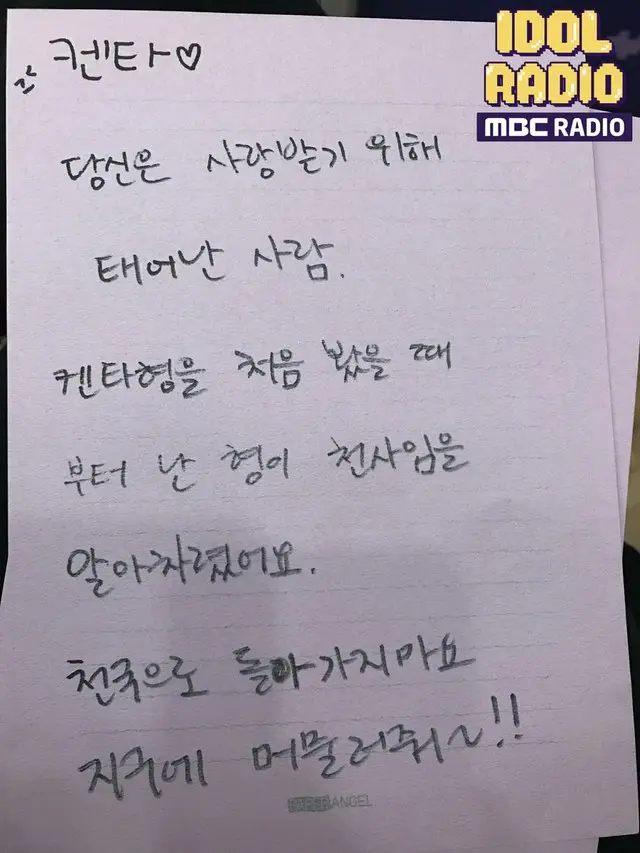 IDOL
RADIO
MBC RADIO
켄타♡
당신은 사랑받기 위해
태어난 사람.
켄타형을 처음 봤을 때
부터 난 형이 천사임을
알아차렸어요.
천국으로 돌아가지마요
지구에 머물러줘~!!
ANGEL